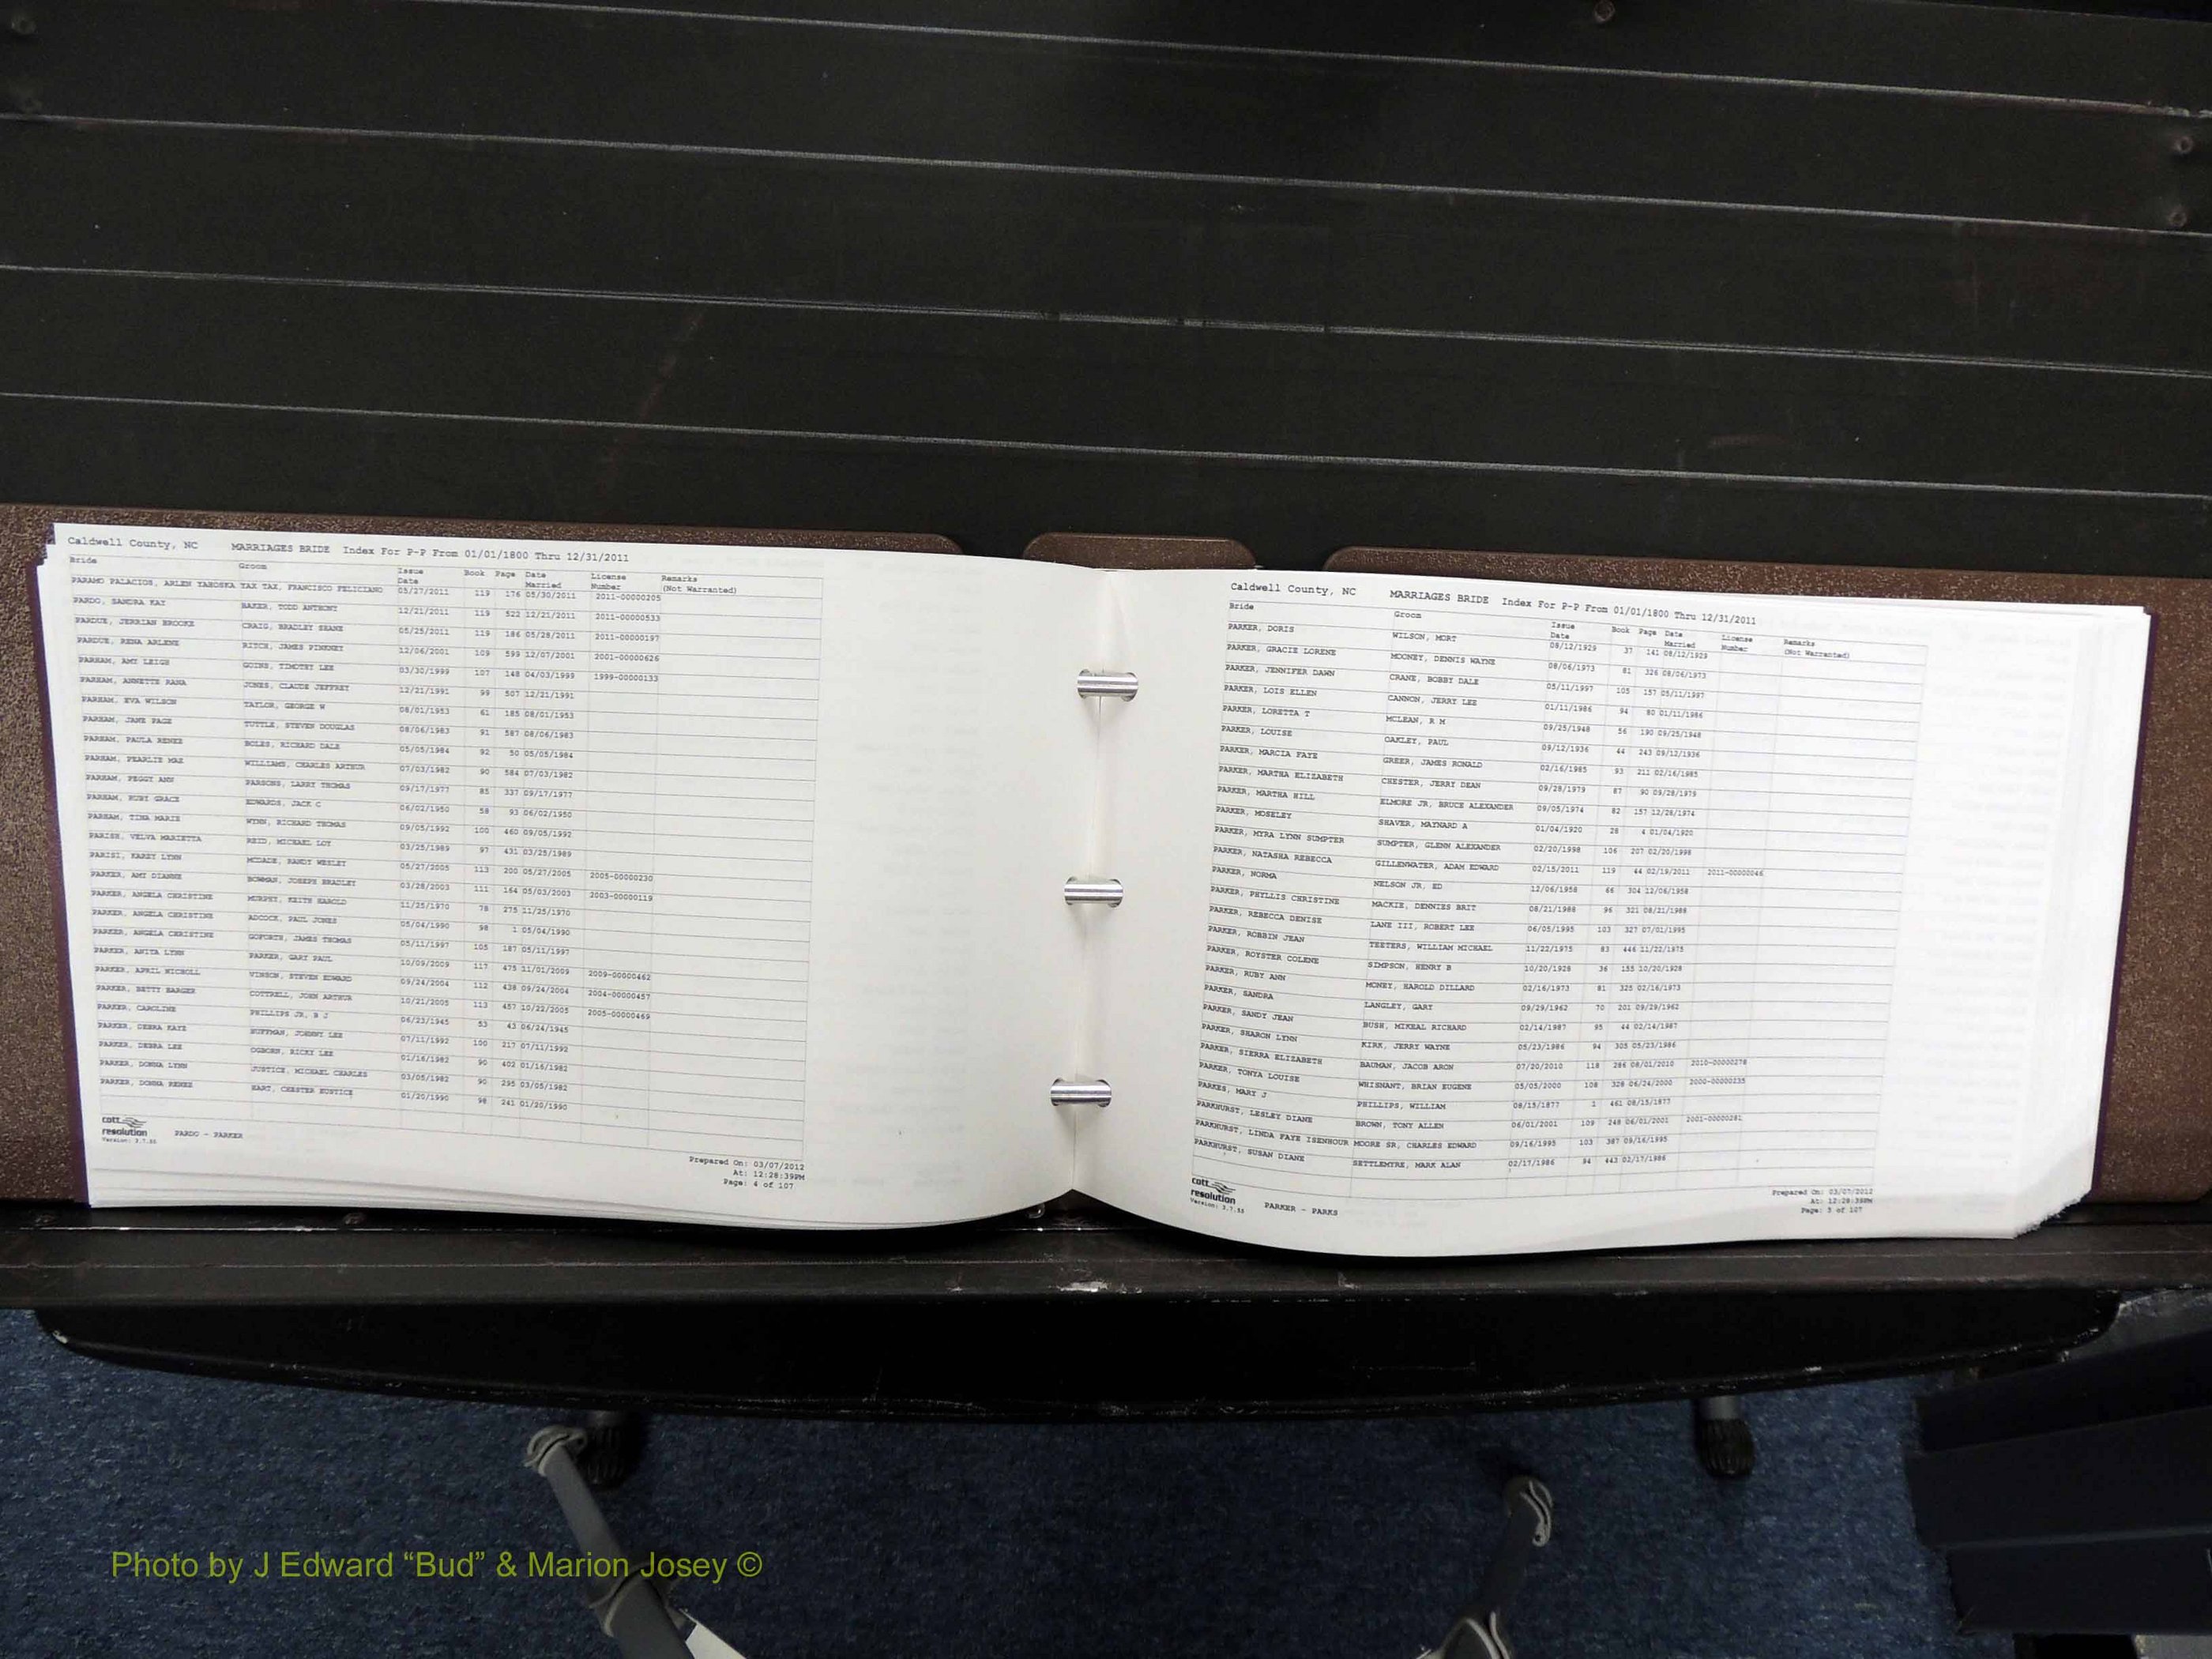 Caldwell County, NC MARRIAGES BRIDE Index For P-P From 01/01/1800 Thru 12/31/2011
Bride Groom Issue Date Book Page Date Married License Number Remarks (Not Warranted)
PARAMO PALACIOS, ARLEN YAHOSKA TAX TAX, FRANCISCO FELICIANO 05/27/2011 119 176 05/30/2011 2011-00000205
PARDO, SANDRA KAY BAKER, TODD ANTHONY 12/21/2011 119 522 12/21/2011 2011-00000533
PARDUE, JERRIAN BROOKE CRAIG, BRADLEY SHANE 05/25/2011 119 186 05/28/2011 2011-00000197
PARDUE, RENA ARLENE RITCH, JAMES PINKNEY 12/06/2001 109 599 12/07/2001 2001-00000626
PARHAM, AMY LEIGH GOINS, TIMOTHY LEE 03/30/1999 107 148 04/03/1999 1999-00000133
PARHAM, ANNETTE RANA JONES, CLAUDE JEFFREY 12/21/1991 99 507 12/21/1991
PARHAM, EVA WILSON TAYLOR, GEORGE W 08/01/1953 61 185 08/01/1953
PARHAM, JANE PAGE TUTTLE, STEVEN DOUGLAS 08/06/1983 91 587 08/06/1983
PARHAM, PAULA RENEE BOLES, RICHARD DALE 05/05/1984 92 50 05/05/1984
PARHAM, PEARLIE MAE WILLIAMS, CHARLES ARTHUR 07/03/1982 90 584 07/03/1982
PARHAM, PEGGY ANN PARSONS, LARRY THOMAS 09/17/1977 85 337 09/17/1977
PARHAM, RUBY GRACE EDWARDS, JACK C 06/02/1950 58 93 06/02/1950
PARHAM, TINA MARIE WYNN, RICHARD THOMAS 09/05/1992 100 460 09/05/1992
PARISH, VELVA MARIETTA REID, MICHAEL LOY 03/25/1989 97 431 03/25/1989
PARISI, KAREY LYNN MCDADE, RANDY WESLEY 05/27/2005 113 200 05/27/2005 2005-00000230
PARKER, AMY DIANNE BOWMAN, JOSEPH BRADLEY 03/28/2003 111 164 05/03/2003 2003-00000119
PARKER, ANGELA CHRISTINE MURPHY, KEITH HAROLD 11/25/1970 78 275 11/25/1970
PARKER, ANGELA CHRISTINE ADCOCK, PAUL JONES 05/04/1990 98 1 05/04/1990
PARKER, ANGELA CHRISTINE GOFORTH, JAMES THOMAS 05/11/1997 105 187 05/11/1997
PARKER, ANITA LYNN PARKER, GARY PAUL 10/09/2009 117 475 11/01/2009 2009-00000462
PARKER, APRIL NICHOLL VINSON, STEVEN EDWARD 09/24/2004 112 438 09/24/2004 2004-00000457
PARKER, BETTY BARGER COTTRELL, JOHN ARTHUR 10/21/2005 113 457 10/22/2005 2005-00000469
PARKER, CAROLINE PHILLIPS JR, B J 06/23/1945 53 43 06/24/1945
PARKER, DEBRA KAYE HUFFMAN, JOHNNY LEE 07/11/1992 100 217 07/11/1992
PARKER, DEBRA LEE OGBORN, RICKY LEE 01/16/1982 90 402 01/16/1982
PARKER, DONNA LYNN JUSTICE, MICHAEL CHARLES 03/05/1982 90 295 03/05/1982
PARKER, DONNA RENEE HART, CHESTER EUSTICE 01/20/1990 98 241 01/20/1990
cott resolution
Version: 3.7.55 PARDO - PARKER
Prepared On: 03/07/2012
At: 12:28:39PM
Page: 4 of 107
Caldwell County, NC MARRIAGES BRIDE Index For P-P From 01/01/1800 Thru 12/31/2011
Bride Groom Issue Date Book Page Date Married License Number Remarks (Not Warranted)
PARKER, DORIS WILSON, MORT 08/12/1929 37 141 08/12/1929
PARKER, GRACIE LORENE MOONEY, DENNIS WAYNE 08/06/1973 81 326 08/06/1973
PARKER, JENNIFER DAWN CRANE, BOBBY DALE 05/11/1997 105 157 05/11/1997
PARKER, LOIS ELLEN CANNON, JERRY LEE 01/11/1986 94 80 01/11/1986
PARKER, LORETTA T MCLEAN, R M 09/25/1948 56 190 09/25/1948
PARKER, LOUISE OAKLEY, PAUL 09/12/1936 44 243 09/12/1936
PARKER, MARCIA FAYE GREER, JAMES RONALD 02/16/1985 93 211 02/16/1985
PARKER, MARTHA ELIZABETH CHESTER, JERRY DEAN 09/28/1979 87 90 09/28/1979
PARKER, MARTHA HILL ELMORE JR, BRUCE ALEXANDER 09/05/1974 82 157 12/28/1974
PARKER, MOSELEY SHAVER, MAYNARD A 01/04/1920 28 4 01/04/1920
PARKER, MYRA LYNN SUMPTER SUMPTER, GLENN ALEXANDER 02/20/1998 106 207 02/20/1998
PARKER, NATASHA REBECCA GILLENWATER, ADAM EDWARD 02/15/2011 119 44 02/19/2011 2011-00000046
PARKER, NORMA NELSON JR, ED 12/06/1958 66 304 12/06/1958
PARKER, PHYLLIS CHRISTINE MACKIE, DENNIES BRIT 08/21/1988 96 321 08/21/1988
PARKER, REBECCA DENISE LANE III, ROBERT LEE 06/05/1995 103 327 07/01/1995
PARKER, ROBBIN JEAN TEETERS, WILLIAM MICHAEL 11/22/1975 83 446 11/22/1975
PARKER, ROYSTER COLENE SIMPSON, HENRY B 10/20/1928 36 155 10/20/1928
PARKER, RUBY ANN MONEY, HAROLD DILLARD 02/16/1973 81 325 02/16/1973
PARKER, SANDRA LANGLEY, GARY 09/29/1962 70 201 09/29/1962
PARKER, SANDY JEAN BUSH, MIKEAL RICHARD 02/14/1987 95 44 02/14/1987
PARKER, SHARON LYNN KIRK, JERRY WAYNE 05/23/1986 94 305 05/23/1986
PARKER, SIERRA ELIZABETH BAUMAN, JACOB ARON 07/20/2010 118 286 08/01/2010 2010-00000278
PARKER, TONYA LOUISE WHISNANT, BRIAN EUGENE 05/05/2000 108 328 06/24/2000 2000-00000235
PARKES, MARY J PHILLIPS, WILLIAM 08/15/1877 1 461 08/15/1877
PARKHURST, LESLEY DIANE BROWN, TONY ALLEN 06/01/2001 109 248 06/01/2001 2001-00000281
PARKHURST, LINDA FAYE ISENHOUR MOORE SR, CHARLES EDWARD 09/16/1995 103 387 09/16/1995
PARKHURST, SUSAN DIANE SETTLEMYRE, MARK ALAN 02/17/1986 94 443 02/17/1986
cott resolution
Version: 3.7.55 PARKER - PARKS
Prepared On: 03/07/2012
At: 12:28:39PM
Page: 5 of 107
Photo by J Edward “Bud” & Marion Josey ©